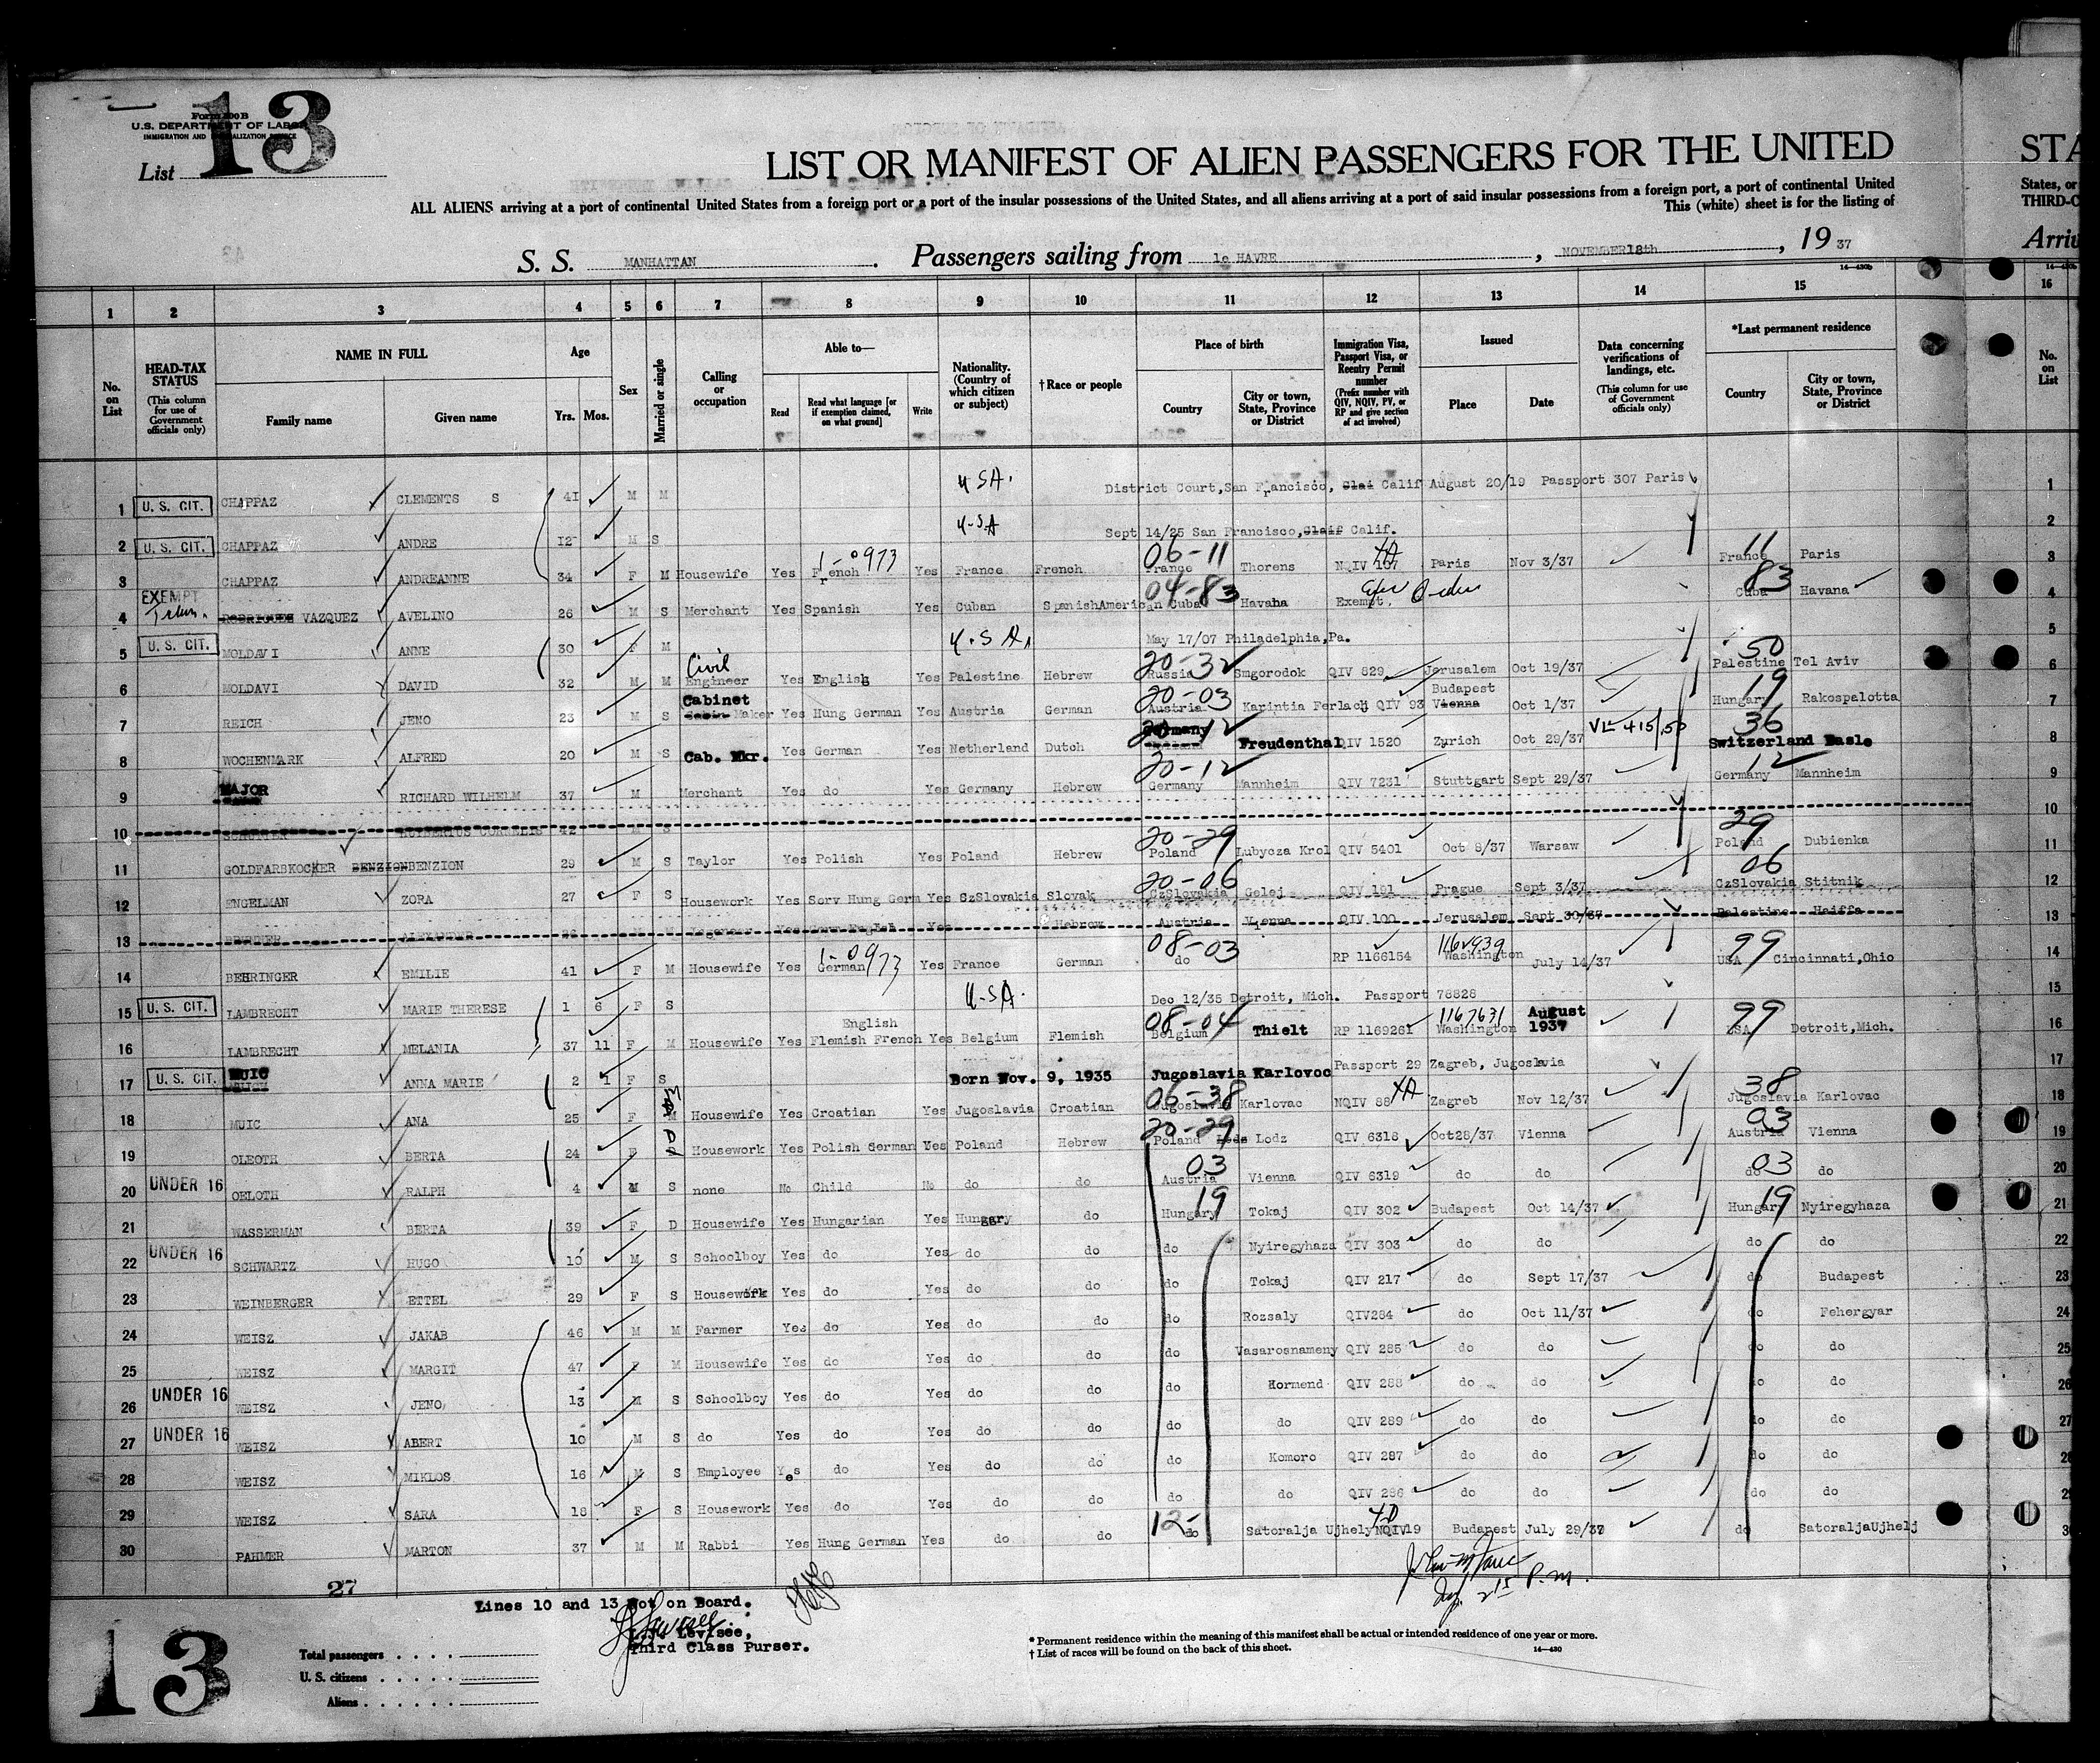 13
Form 500 B
U.S. DEPARTMENT OF LABOR
IMMIGRATION AND NATURALIZATION SERVICE
List
LIST OR MANIFEST OF ALIEN PASSENGERS FOR THE UNITED
STA
ALL ALIENS arriving at a port of continental United States from a foreign port or a port of the insular possessions of the United States, and all aliens arriving at a port of said insular possessions from a foreign port, a port of continental United
States, or
This (white) sheet is for the listing of
THIRD-C
S. S. MANHATTAN. Passengers sailing from le HAVRE, NOVEMBER 18th, 19 37
Arriv
1 2 3 4 5 6 7 8 9 10 11 12 13 14 15 16
No. on List
HEAD-TAX STATUS (This column for use of Government officials only)
NAME IN FULL
Family name Given name
Age Yrs. Mos.
Sex
Married or single
Calling or occupation
Able to—
Read Read what language [or if exemption claimed, on what ground] Write
Nationality. (Country of which citizen or subject)
† Race or people
Place of birth
Country City or town, State, Province or District
Immigration Visa, Passport Visa, or Reentry Permit number (Prefix number with QIV, NQIV, PV, or RP and give section of act involved)
Issued
Place Date
Data concerning verifications of landings, etc. (This column for use of Government officials only)
*Last permanent residence
Country City or town, State, Province or District
No. on List
1 U. S. CIT. CHAPPAZ CLEMENTS S 41 M M U.S.A. District Court, San Francisco, Clai Calif August 20/19 Passport 307 Paris 1
2 U. S. CIT. CHAPPAZ ANDRE 12 M S U.S.A Sept 14/25 San Francisco, Claif Calif. 2
3 CHAPPAZ ANDREANNE 34 F M Housewife Yes French 1-0973 Yes France French 06-11 France Thorens NQIV 167 Paris Nov 3/37 11 France Paris 3
4 EXEMPT RODRIGUES VAZQUEZ AVELINO 26 M S Merchant Yes Spanish Yes Cuban SpanishAmerican 04-83 Cuba Havana Exempt. 83 Cuba Havana 4
5 U. S. CIT. MOLDAVI ANNE 30 F M U.S.A. May 17/07 Philadelphia, Pa. 5
6 MOLDAVI DAVID 32 M M Civil Engineer Yes English Yes Palestine Hebrew 20-32 Russia Smgorodok QIV 829 Jerusalem Oct 19/37 50 Palestine Tel Aviv 6
7 REICH JENO 23 M S Cabinet Maker Yes Hung German Yes Austria German 20-03 Austria Karintia Ferlach QIV 93 Budapest Vienna Oct 1/37 19 Hungary Rakospalotta 7
8 WOCHENMARK ALFRED 20 M S Cab. Mkr. Yes German Yes Netherland Dutch Germany Freudenthal QIV 1520 Zyrich Oct 29/37 VL 415/50 36 Switzerland Basle 8
9 MAJOR RICHARD WILHELM 37 M Merchant Yes do Yes Germany Hebrew 20-12 Germany Mannheim QIV 7231 Stuttgart Sept 29/37 12 Germany Mannheim 9
10 42 M S 10
11 GOLDFARBKOCKER BENZION BENZION 29 M S Taylor Yes Polish Yes Poland Hebrew 20-29 Poland Lubycza Krol QIV 5401 Oct 8/37 Warsaw 29 Poland Dubienka 11
12 ENGELMAN ZORA 27 F S Housework Yes Serv Hung Germ Yes CzSlovakia Slovak 20-06 CzSlovakia Gelej QIV 191 Prague Sept 3/37 06 CzSlovakia Stitnik 12
13 ALEXANDER Yes Hebrew Austria Vienna QIV 100 Jerusalem Sept 30/37 Palestine Haiffa 13
14 BEHRINGER EMILIE 41 F M Housewife Yes German 1-0973 Yes France German 08-03 do RP 1166154 Washington July 14/37 99 USA Cincinnati, Ohio 14
15 U. S. CIT. LAMBRECHT MARIE THERESE 1 6 F S U.S.A. Dec 12/35 Detroit, Mich. Passport 78828 15
16 LAMBRECHT MELANIA 37 11 F M Housewife Yes English Flemish French Yes Belgium Flemish 08-04 Belgium Thielt RP 1169261 1167631 Washington August 1937 99 USA Detroit, Mich. 16
17 U. S. CIT. MUIC ANNA MARIE 2 1 F S Born Nov. 9, 1935 Jugoslavia Karlovoc Passport 29 Zagreb, Jugoslavia 17
18 MUIC ANA 25 F M Housewife Yes Croatian Yes Jugoslavia Croatian 06-38 Jugoslavia Karlovac NQIV 88 Zagreb Nov 12/37 38 Jugoslavia Karlovac 18
19 OLEOTH BERTA 24 F D Housework Yes Polish German Yes Poland Hebrew 20-29 Poland Lods Lodz QIV 6318 Oct28/37 Vienna 03 Austria Vienna 19
20 UNDER 16 OELOTH RALPH 4 M S none No Child No do do 03 Austria Vienna QIV 6319 do do 03 do do 20
21 WASSERMAN BERTA 39 F D Housewife Yes Hungarian Yes Hungary do 19 Hungary Tokaj QIV 302 Budapest Oct 14/37 19 Hungary Nyiregyhaza 21
22 UNDER 16 SCHWARTZ HUGO 10 M S Schoolboy Yes do Yes do do do Nyiregyhaza QIV 303 do do do do 22
23 WEINBERGER ETTEL 29 F S Housework Yes do Yes do do do Tokaj QIV 217 do Sept 17/37 do Budapest 23
24 WEISZ JAKAB 46 M M Farmer Yes do Yes do do do Rozsaly QIV284 do Oct 11/37 do Fehergyar 24
25 WEISZ MARGIT 47 F M Housewife Yes do Yes do do do Vasarosnameny QIV 285 do do do do 25
26 UNDER 16 WEISZ JENO 13 M S Schoolboy Yes do Yes do do do Kormend QIV 288 do do do do 26
27 UNDER 16 WEISZ ABERT 10 M S do Yes do Yes do do do do QIV 289 do do do do 27
28 WEISZ MIKLOS 16 M S Employee Yes do Yes do do do Komoro QIV 287 do do do do 28
29 WEISZ SARA 18 F S Housework Yes do Yes do do do do QIV 286 do do do do 29
30 PAHMER MARTON 37 M M Rabbi Yes Hung German Yes do do 12- do Satoralja Ujhely NQIV19 Budapest July 29/37 do SatoraljaUjhelj 30
27
Lines 10 and 13 Not on Board.
Levisee,
Third Class Purser.
13
Total passengers
U. S. citizens
Aliens
* Permanent residence within the meaning of this manifest shall be actual or intended residence of one year or more.
† List of races will be found on the back of this sheet.
14—430